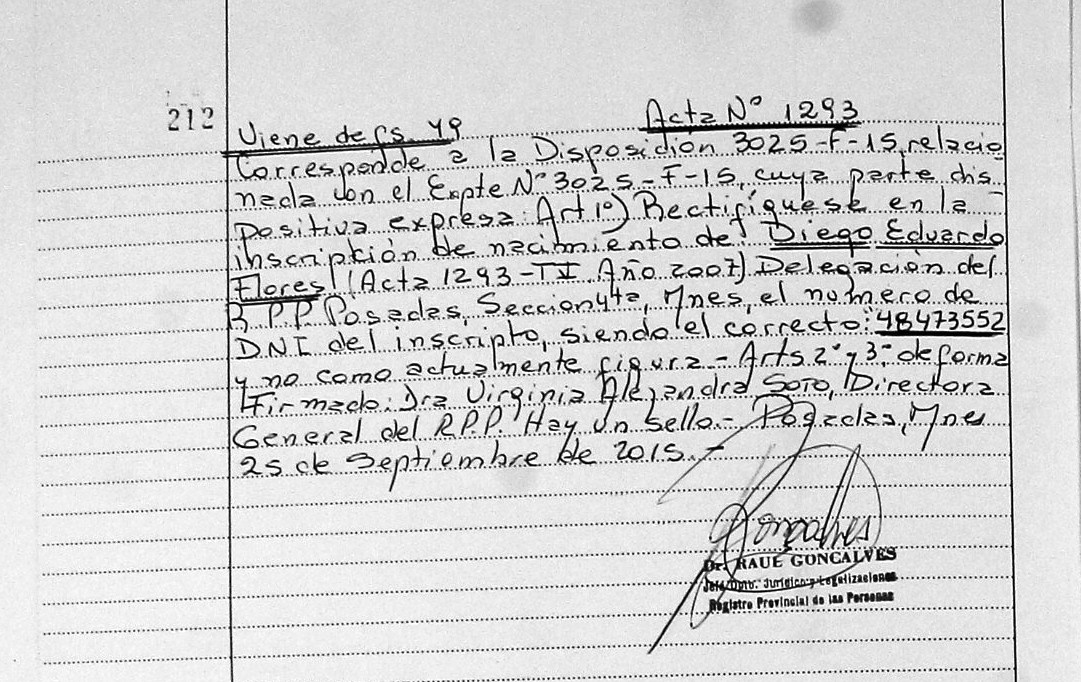 212
Viene de fs. 49 Acta N° 1293
Corresponde a la Disposición 3025-F-15, relacio
nada con el Expte N° 3025-F-15, cuya parte dis
positiva expresa: Art 1°) Rectifíquese en la
inscripción de nacimiento de: Diego Eduardo
Flores (Acta 1293-TIV Año 2007) Delegación del
R.P.P. Posadas, Sección 4ta, Mnes, el numero de
DNI del inscripto, siendo el correcto: 48473552
y no como actualmente figura - Arts 2° y 3° de forma
Firmado: Dra Virginia Alejandra Soto, Directora
General del R.P.P. Hay un sello.- Posadas, Mnes
25 de Septiembre de 2015.-
Goncalves
Dr. RAUE GONCALVES
Jefe Dpto. Jurídico y Legalizaciones
Registro Provincial de las Personas